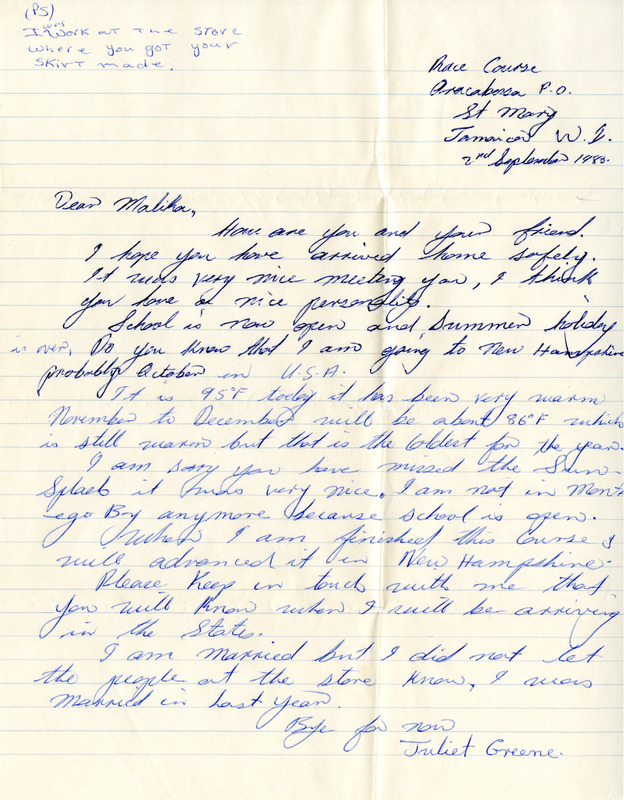 (PS)
I was work at the store
where you got your
skirt made.
Race Course
Oracabessa P.O.
St Mary
Jamaica W.I.
2nd September 1988.
Dear Malika,
How are you and your friend.
I hope you have arrived home safely.
It was very nice meeting you, I think
you have a nice personality.
School is now open and summer holiday
is over, Do you know that I am going to New Hampshire
probably October in U.S.A.
It is 95°F today it has been very warm
November to December will be about 86°F which
is still warm but that is the coldest for the year.
I am sorry you have missed the Sun-
Splash it was very nice. I am not in Mont-
ego Bay anymore because school is open.
When I am finished this course I
will advanced it in New Hampshire.
Please keep in touch with me that
you will know when I will be arriving
in the States.
I am married but I did not let
the people at the store know, I was
married in last year.
Bye for now
Juliet Greene.